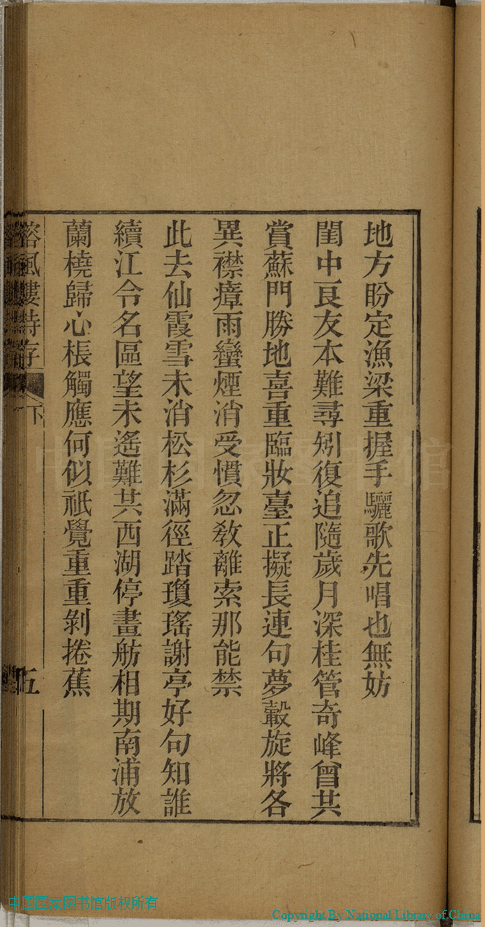 地方盼定漁梁重握手驪歌先唱也無妨
閨中良友本難尋矧復追隨歲月深桂管奇峰曾共
賞蘇門勝地喜重臨妝臺正擬長連句夢轂旋將各
異襟瘴雨蠻煙消受慣忽教離索那能禁
此去仙霞雪未消松杉滿徑踏瓊瑤謝亭好句知誰
續江令名區望未遙難共西湖停畫舫相期南浦放
蘭橈歸心棖觸應何似祇覺重重剝捲蕉
風樓詩存
下
五
中国国家图书馆版权所有
Copyright By National Library of China